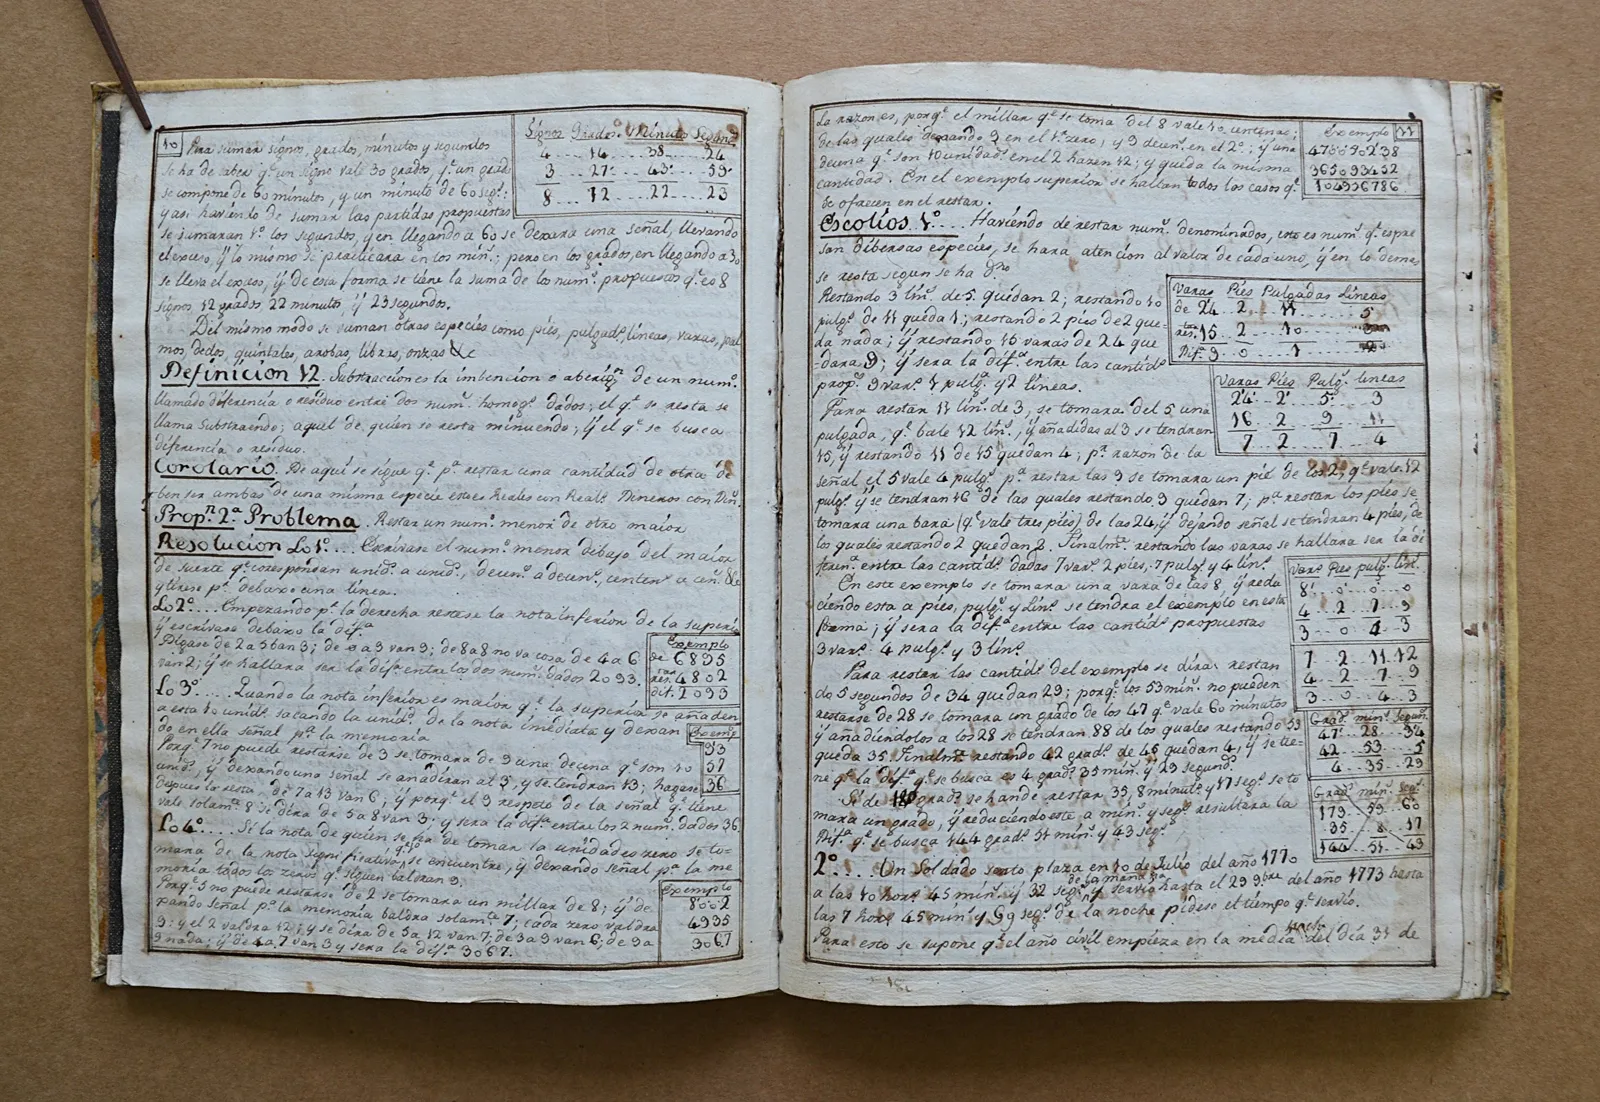 10
Para sumar signos, grados, minutos y segundos
se ha de saber q.e un signo vale 30 grados, y.e un grado
se compone de 60 minutos, y un minuto de 60 seg.s:
y asi haviendo de sumar las partidas propuestas
Signos Grados. Minutos Segund.
4 .... 14 .... 38 .... 24
3 .... 27 .... 43 .... 59
8 .... 12 .... 22 .... 23
se sumaran 1.o los segundos, y en llegando a 60 se dexara una señal, llevando
el exceso y lo mismo se practicara en los min.s; pero en los grados, en llegando a 30
se lleva el exceso, ÿ de esta forma se tiene la suma de los num.s propuestos q.e es 8
signos, 12 grados, 22 minutos, ÿ 23 segundos.
Del mismo modo se suman otras especies como pies, pulgad.s, lineas, varas, pal
mos, dedos, quintales, arobas, libras, onzas &c
Definicion 12. Substraccion es la imbencion o aberig.n de un num.o
llamado diferencia o residuo entre dos num.s homog.s dados; el q.e se resta se
llama Substraendo; aquel de quien se resta minuendo; ÿ el q.e se busca
diferencia o residuo.
Corolario. De aqui se sigue q.e p.a restar una cantidad de otra de
ben ser ambas de una misma especie esto es Reales con Real.s Dineros con Din.s
Prop.n 2.a Problema. Restar un num.o menor de otro maior
Resolucion Lo 1.o .... Escrivase el num.o menor dibajo del maior
de suerte q.e corespondan unid.s a unid.s, decen.s a decen.s, centen.s a cen.s &c
y tirese p.r debaxo una linea.
Lo 2.o .... Empezando p.r la derecha restese la nota inferior de la superi.r
ÿ escrivase debaxo la dif.a
Digase de 2 a 5 ban 3; de 0 a 9 van 9; de 8 a 8 no va cosa, de 4 a 6
van 2; ÿ se hallara ser la dif.a entre los dos num.s dados 2093.
Exemplo
de 6895
res. 4802
dif. 2093
Lo 3.o .... Quando la nota inferior es maior q.e la superior se añaden
a esta 10 unid.s sacando la unid.d de la nota imediata y dexan
do en ella señal p.a la memoria
Porq.e 7 no puede restarse de 3 se tomara de 9 una decina q.e son 10
unid.s, ÿ dexando una señal se añadiran al 3, y se tendran 13; hagase
despues la resta de 7 a 13 van 6; ÿ porq.e el 9 respeto de la señal q.e tiene
vale solam.te 8 se dira de 5 a 8 van 3. y sera la dif.a entre los 2 num.s dados 36
Exemp.
93
57
36
Lo 4.o .... Si la nota de quien se ha de tomar la unidad es zero se to=
mara de la nota significativa q.e se encuentre, y dexando señal p.a la me
moria todos los zeros q.e siguen baldran 9.
Porq.e 5 no puede restarse de 2 se tomara un millar de 8; ÿ de
xando señal p.a la memoria baldra solam.te 7; cada zero valdra
9: y el 2 valdra 12; y se dira de 5 a 12 van 7, de 3 a 9 van 6, de 9 a
9 nada; ÿ de 4 a 7 van 3 y sera la dif.a 3067.
Exemplo
8002
4935
3067
11
La razon es, porq.e el millar q.e se toma del 8 vale 10 centenas;
de las quales dexando 9 en el 1.o zero; y 9 decen.s en el 2.o; y una
decena q.e son 10 unidad.s en el 2 hazen 12; y queda la misma
cantidad. En el exemplo superior se hallan todos los casos q.e
se ofrecen en el restar.
Exemplo
470030238
365093452
104936786
Escolios 1.o .... Haviendo de restar num.s denominados, esto es num.s q.e espre
san dibersas especies, se hará atencion al valor de cada uno, ÿ en lo demas
se resta segun se ha dho
Restando 3 lin.s de 5 quedan 2; restando 10
pulg.s de 11 queda 1; restando 2 pies de 2 que
da nada; ÿ restando 15 varas de 24 que
daran 9; ÿ sera la dif.a entre las cantid.s
prop.s 9 var.s 1 pulg.a y 2 lineas.
Varas Pies Pulgadas Lineas
de 24 .. 2 .... 11 ...... 5
res. 15 .. 2 .... 10 ......
Dif.a 9 .. 0 .... 1 ......
Para restar 11 lin.s de 3, se tomara del 5 una
pulgada, q.e bale 12 lin.s, ÿ añadidas al 3 se tendran
15, ÿ restando 11 de 15 quedan 4; p.r razon de la
Varas Pies Pulg.s lineas
24 2 5 3
16 2 9 11
7 2 7 4
señal el 5 vale 4 pulg.s p.a restar las 9 se tomara un pie de los 2, q.e vale 12
pulg.s ÿ se tendran 16 de las quales restando 9 quedan 7; p.a restar los pies se
tomara una bara (q.e vale tres pies) de las 24, ÿ dejando señal se tendran 4 pies, de
los quales restando 2 quedan 2. Finalm.te restando las varas se hallara ser la di
feren.a entre las cantid.s dadas 7 var.s 2 pies, 7 pulg.s y 4 lin.s
En este exemplo se tomara una vara de las 8, ÿ redu
ciendo esta a pies, pulg.s y Lin.s se tendra el exemplo en esta
forma; ÿ sera la dif.a entre las cantid.s propuestas
3 var.s 4 pulg.s y 3 lin.s
Var.s Pies pulg.s Lin.s
8 .. 0 .. 0 .. 0
4 .. 2 .. 7 .. 9
3 .. 0 .. 4 .. 3
7 2 11 12
4 2 7 9
3 0 4 3
Para restar las cantid.s del exemplo se dira: restan
do 5 segundos de 34 quedan 29; porq.e los 53 min.s no pueden
restarse de 28 se tomara un grado de los 47 q.e vale 60 minutos
y añadiendolos a los 28 se tendran 88 de los quales restando 53
queda 35. Finalm.te restando 42 grad.s de 46 quedan 4, ÿ se tie=
ne q.e la dif.a q.e se busca es 4 grad.s 35 min.s ÿ 29 segund.s
Grad.s min.s Segun.s
47 .. 28 .. 34
42 .. 53 .. 5
4 .. 35 .. 29
Si de 180 grad.s se han de restar 35, 8 minut.s y 17 seg.s se to
mara un grado, ÿ reduciendo este a min.s y seg.s resultara la
Dif.a q.e se busca 144 grad.s 51 min.s y 43 seg.s
Grad.s min.s seg.s
179 .. 59 .. 60
35 .. 8 .. 17
144 .. 51 .. 43
2.o .... Un Soldado sento plaza en 10 de Julio del año 1770
a las 10 hor.s 45 min.s y 32 seg.s de la mañana y servio hasta el 29 9.bre del año 1773 hasta
las 7 hor.s 45 min.s y 59 seg.s de la noche pidese el tiempo q.e servio.
Para esto se supone q.e el año civil empieza en la media noche del dia 31 de